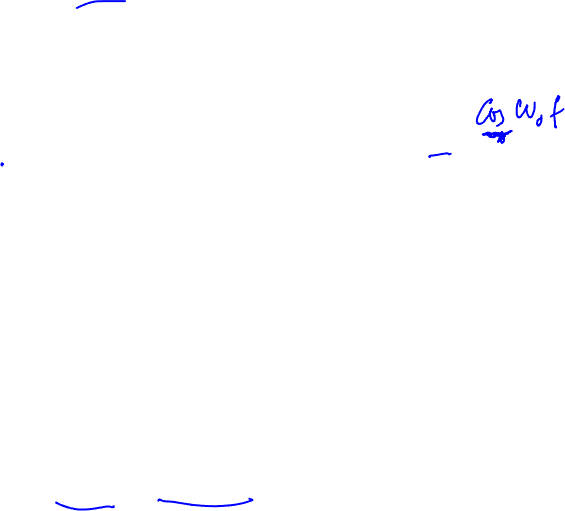 Cos ω₀t